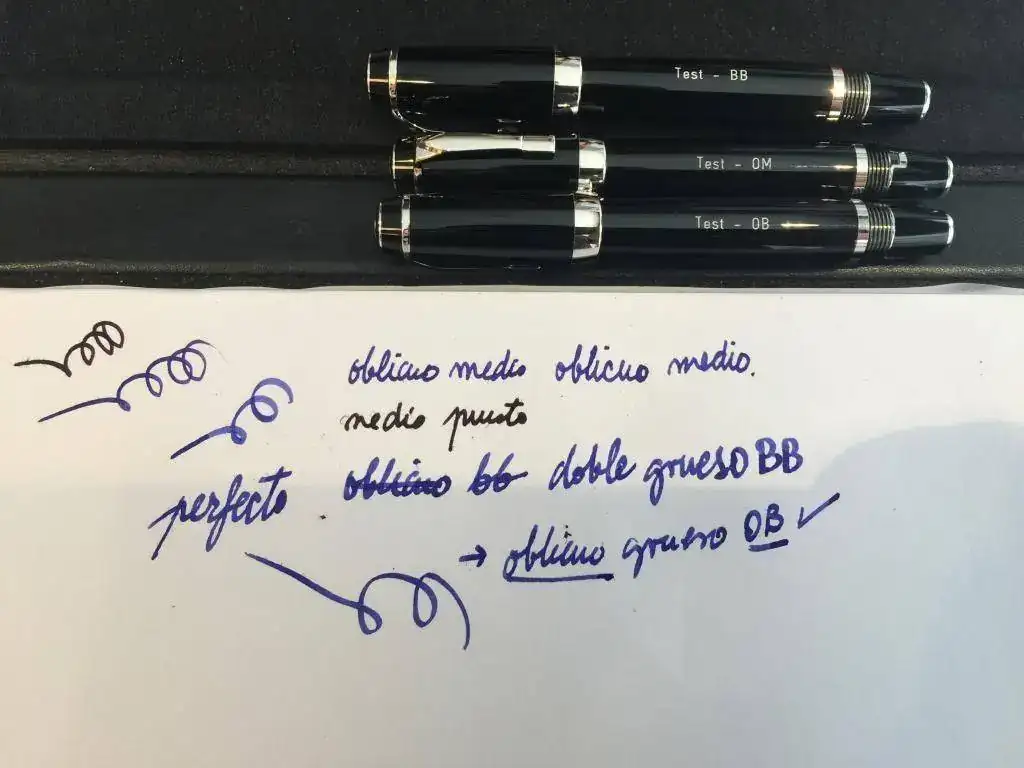 Test - BB
Test - OM
Test - OB
oblicuo medio oblicuo medio.
medio punto
perfecto. oblicuo bb doble grueso BB
→ oblicuo grueso OB ✓